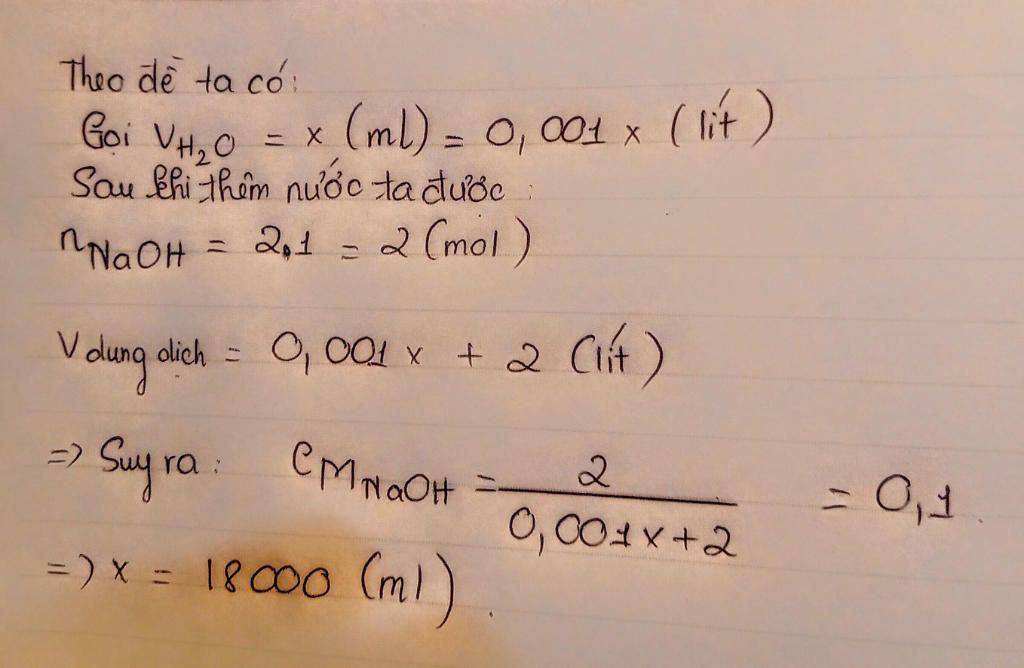 Theo đề ta có:
Gọi V H₂O = x (ml) = 0,001 x (lít)
Sau khi thêm nước ta được :
n NaOH = 2.1 = 2 (mol)
V dung dịch = 0,001 x + 2 (lít)
=> Suy ra : C M NaOH = 2 / 0,001x+2 = 0,1.
=) x = 18000 (ml).